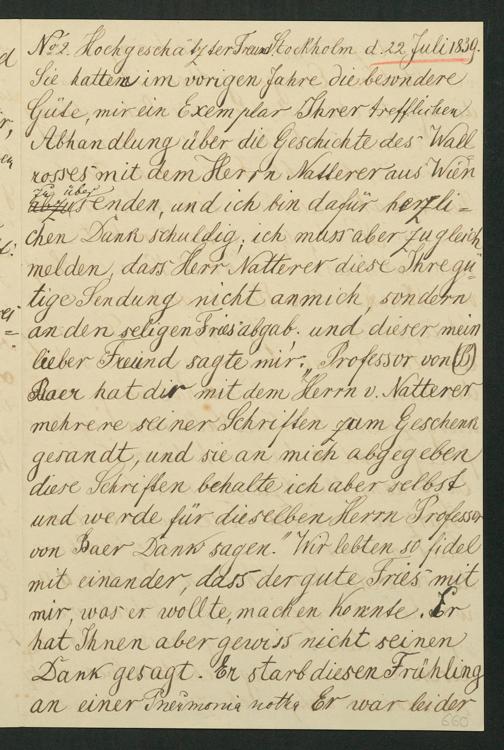 No 2. Hochgeschätzter Freund Stockholm d. 22 Juli 1839.
Sie hatten im vorigen Jahre die besondere
Güte, mir ein Exemplar Ihrer trefflichen
Abhandlung über die Geschichte des Wall
rosses mit dem Herrn Natterer aus Wien
zu über
abzusenden, und ich bin dafür herzli=
chen Dank schuldig; ich muss aber zugleich
melden, dass Herr Natterer diese Ihre gü=
tige Sendung nicht an mich, sondern
an den seligen Fries abgab; und dieser mein
lieber Freund sagte mir: „Professor von (B)
Baer hat dir mit dem Herrn v. Natterer
mehrere seiner Schriften zum Geschenk
gesandt, und sie an mich abgegeben
diese Schriften behalte ich aber selbst
und werde für dieselben Herrn Professor
von Baer Dank sagen." Wir lebten so fidel
mit einander, dass der gute Fries mit
mir, was er wollte, machen konnte. Er
hat Ihnen aber gewiss nicht seinen
Dank gesagt. Er starb diesen Frühling
an einer Pneumonia notha Er war leider
660